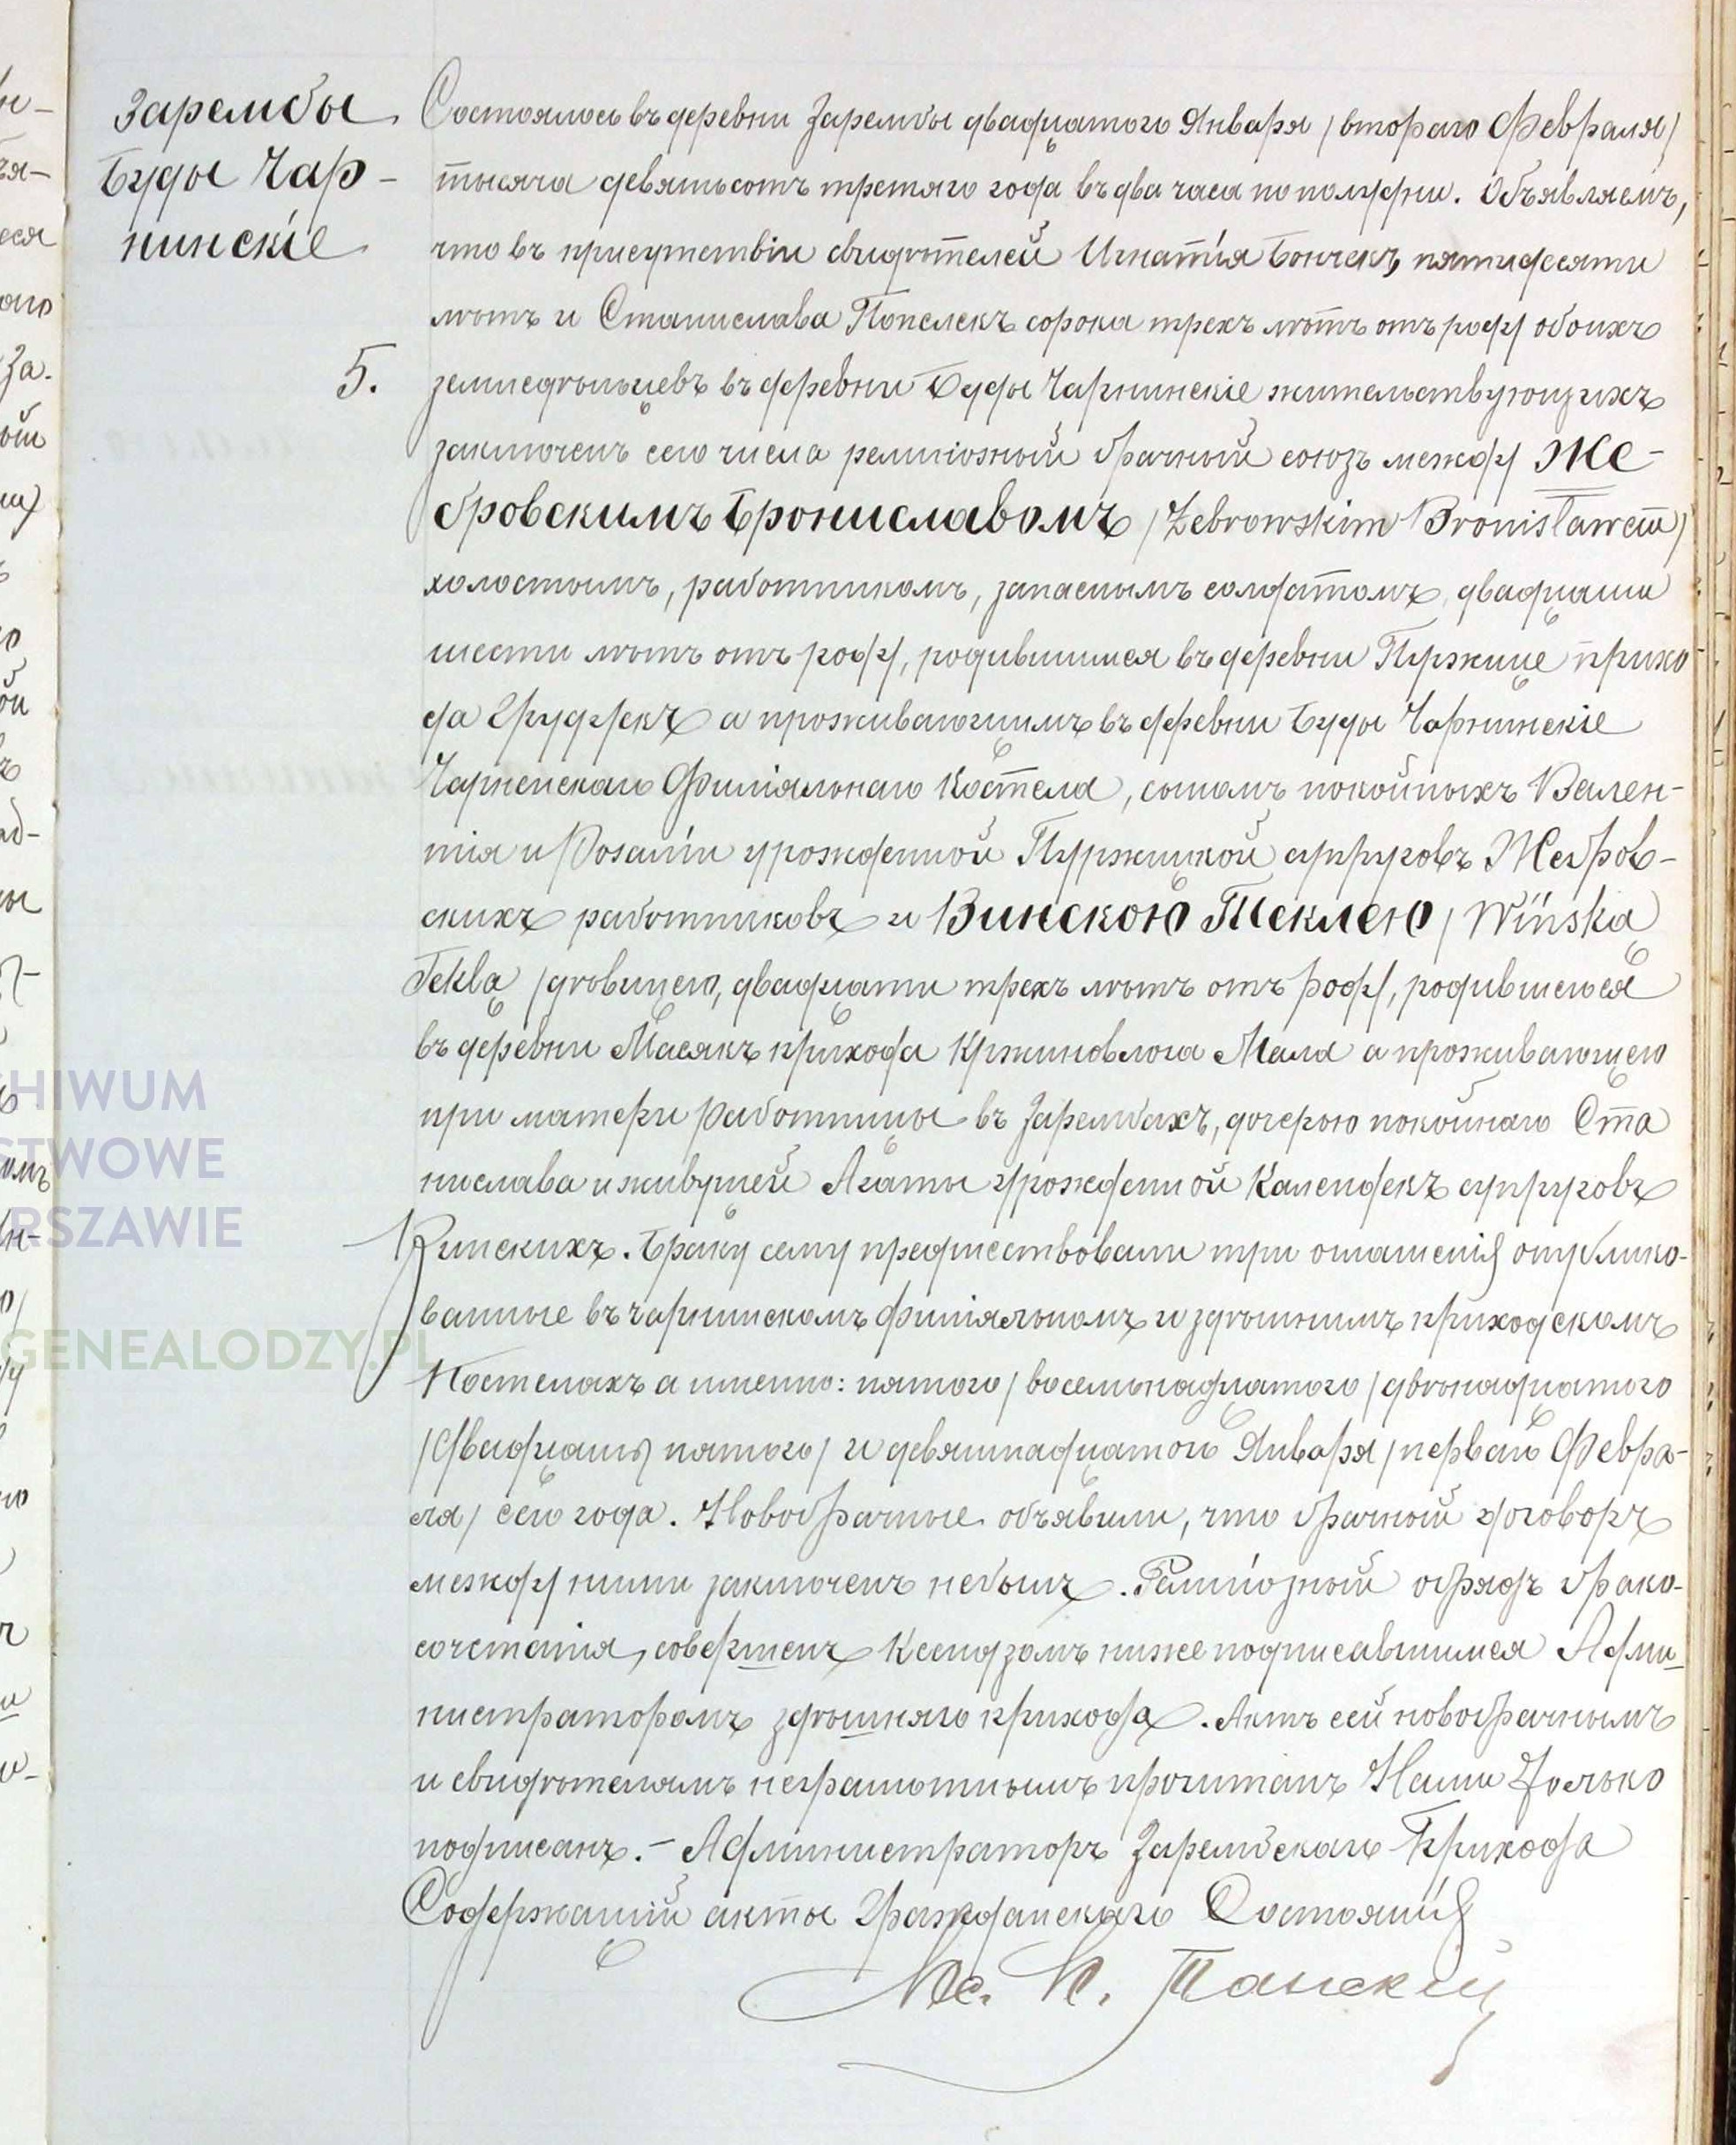 Зарембы
Буды Чар-
нинскіе
5.
Состоялось въ деревни Зарембы двадцатого Января /второго Февраля/
тысяча девятьсотъ третяго года въ два часа по полудни. Объявляемъ,
что въ присутствіи свидѣтелей Игнатія Бончекъ, пятидесяти
лѣтъ и Станислава Попелекъ сорока трехъ лѣтъ отъ роду обоихъ
земледѣльцевъ въ деревни Буды Чарнинскіе жительствующихъ
заключенъ сего числа религіозный брачный союзъ между Же-
бровскимъ Брониславомъ /Żebrowskim Bronisławem/
холостымъ, работникомъ, запаснымъ солдатомъ, двадцати
шести лѣтъ отъ роду, родившимся въ деревни Пржице прихо
да Грудускъ а проживающимъ въ деревни Буды Чарнинскіе
Чарненскаго Филіяльнаго Костела, сыномъ покойныхъ Вален-
тія и Розаліи урожденной Пуржицкой супруговъ Жебров-
скихъ работниковъ и Винскою Теклею /Wińską
Teklą /дѣвицею, двадцати трехъ лѣтъ отъ роду, родившеюся
въ деревни Масякъ прихода Кржиновлога Мала а проживающею
при матери работницы въ Зарембахъ, дочерою покойнаго Ста
нислава и живущей Агаты урожденной Календекъ супруговъ
Винскихъ. Браку сему предшествовали три оглашенія опублико-
ванные въ чарнинскомъ филіяльномъ и здѣшнимъ приходскомъ
Костелахъ а именно: пятого /восемьнадцатого/ двѣнадцатого
/двадцать пятого/ и девятнадцатого Января /перваго Февра-
ля/ сего года. Новобрачные объявили, что брачный договоръ
между ними заключенъ небылъ. Религіозный обрядъ брако-
сочетанія, совершенъ Ксендзомъ нижеподписавшимся Адми-
нистраторомъ здѣшняго прихода. Актъ сей новобрачнымъ
и свидѣтелямъ неграмотнымъ прочитанъ Нами только
подписанъ. - Администраторъ Зарембскаго Прихода
Содержащій акты Гражданскаго Состоянія
Кс. К. Танскій